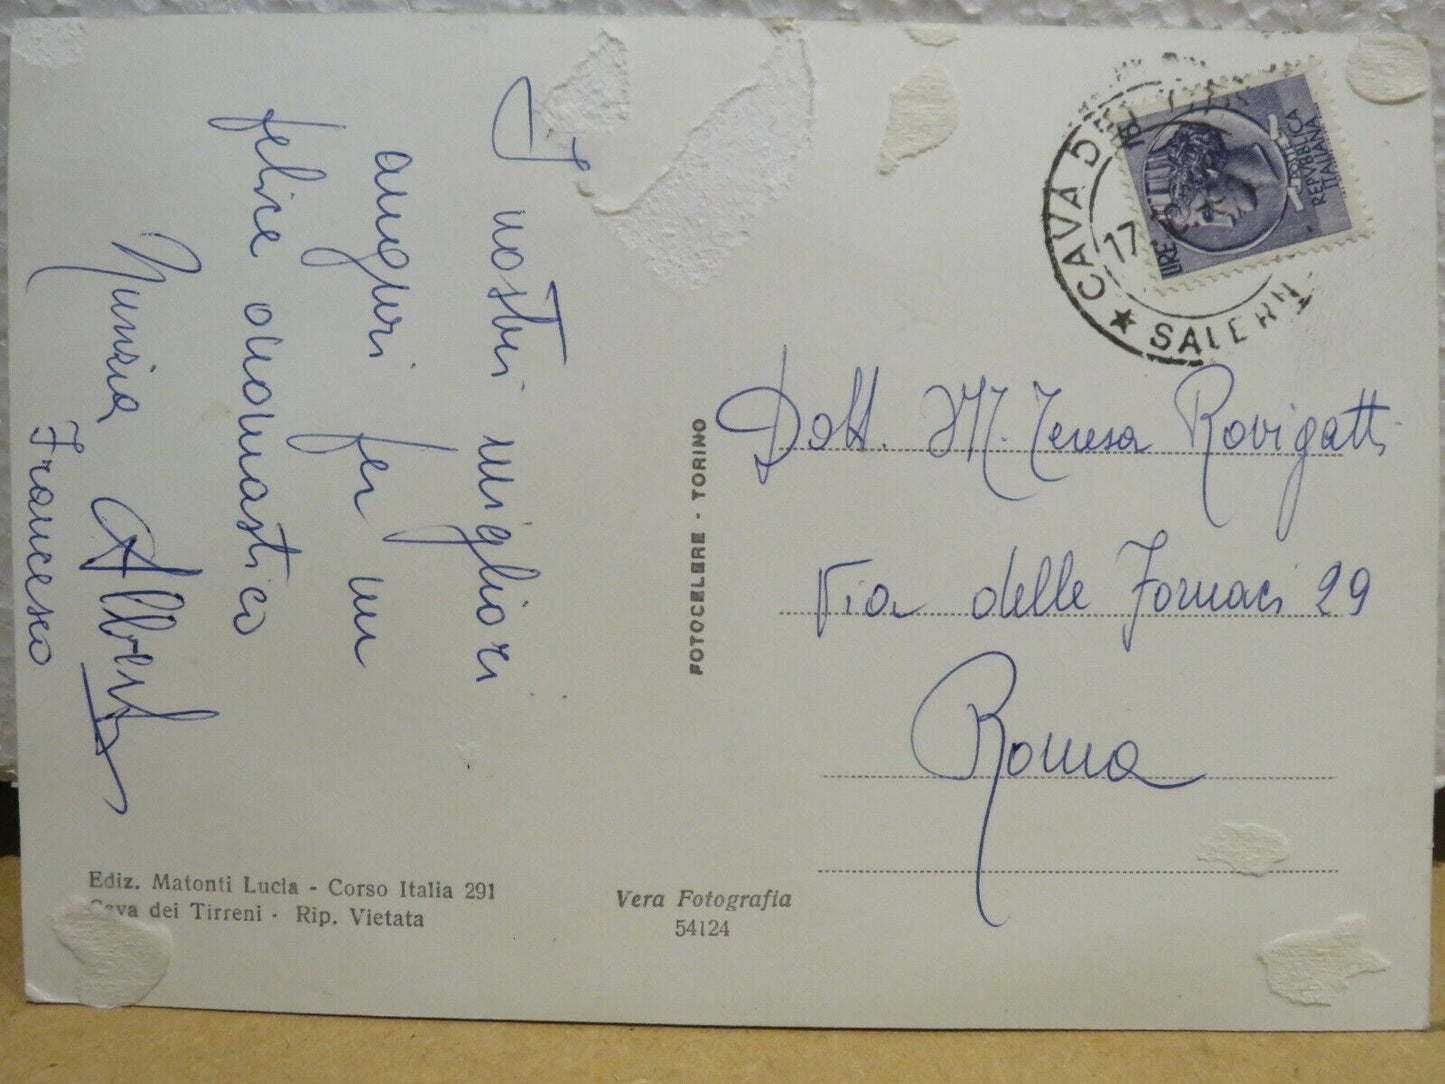 I nostri migliori
auguri per un
felice onomastico
Nunzia Alberto
Francesco
FOTOCELERE - TORINO
Ediz. Matonti Lucia - Corso Italia 291
Cava dei Tirreni - Rip. Vietata
Vera Fotografia
54124
REPVBBLICA
ITALIANA
LIRE
CAVA DE
17
SALERN
Dott. M. Teresa Rovigatti
Via delle Fornaci 29
Roma